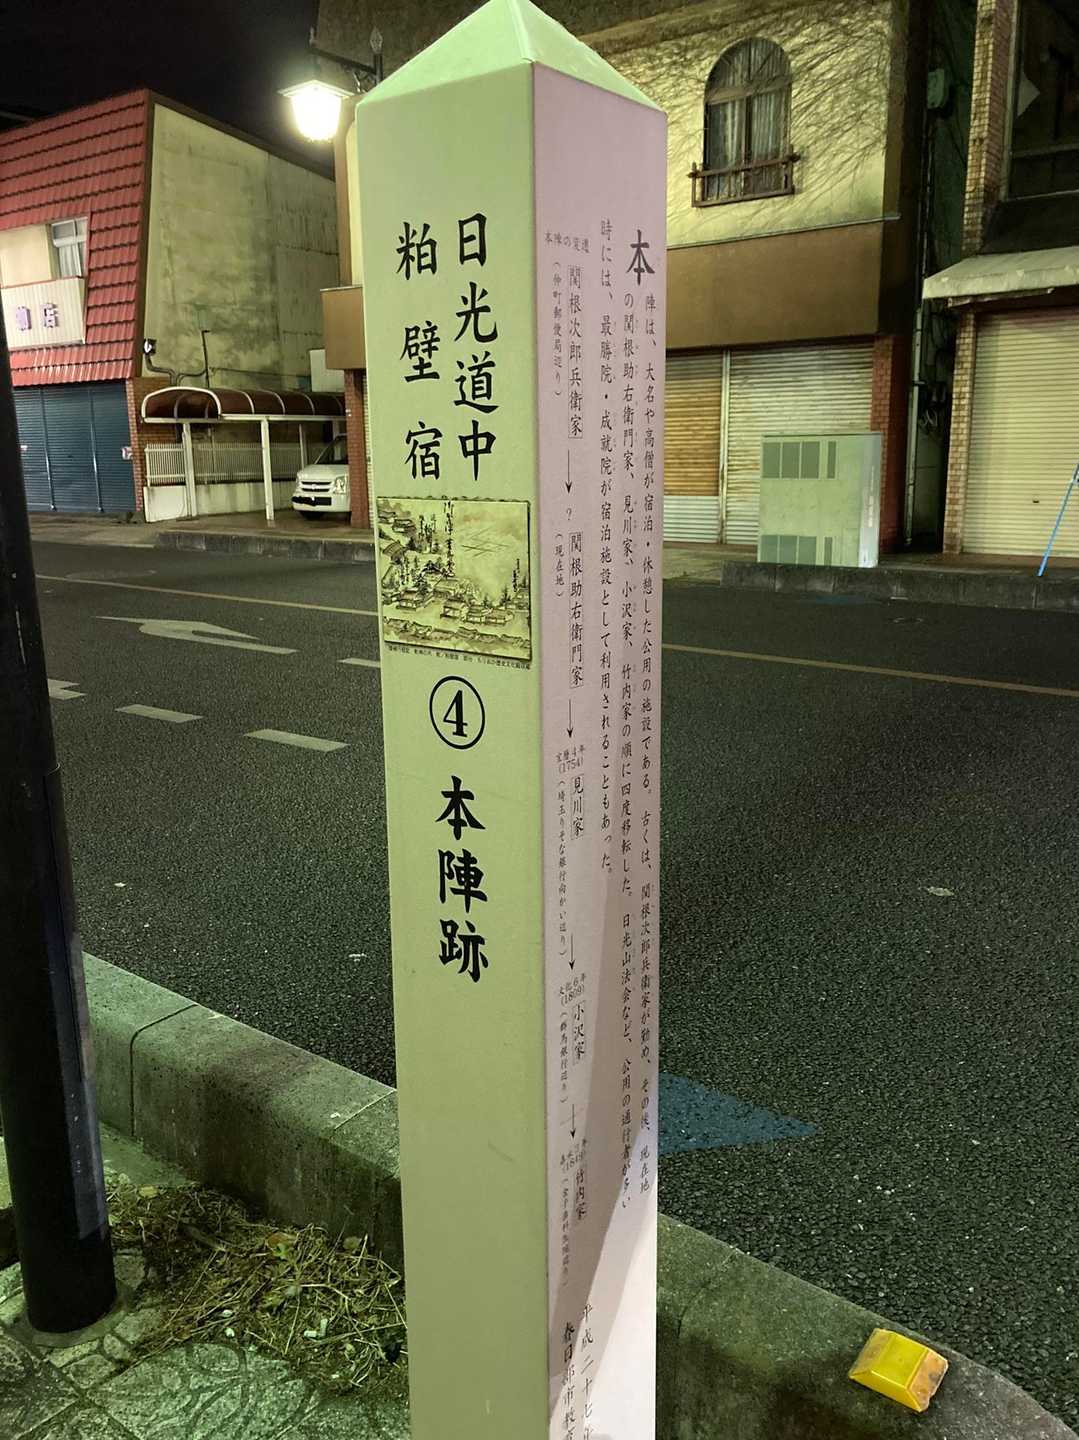 日光道中
粕壁宿
④本陣跡
本陣は、大名や高僧が宿泊・休憩した公用の施設である。古くは、関根次郎兵衛家が勤め、その後、現在地
の関根助右衛門家、見川家、小沢家、竹内家の順に四度移転した。日光山法会など、公用の通行者が多い
時には、最勝院・成就院が宿泊施設として利用されることもあった。
本陣の変遷
関根次郎兵衛家
(仲町郵便局辺り)
↓
?
関根助右衛門家
(現在地)
↓
宝暦4年
(1754)
見川家
(埼玉りそな銀行向かい辺り)
↓
文化6年
(1809)
小沢家
(群馬銀行辺り)
↓
竹内家
平成二十七年
春日部市教育
店